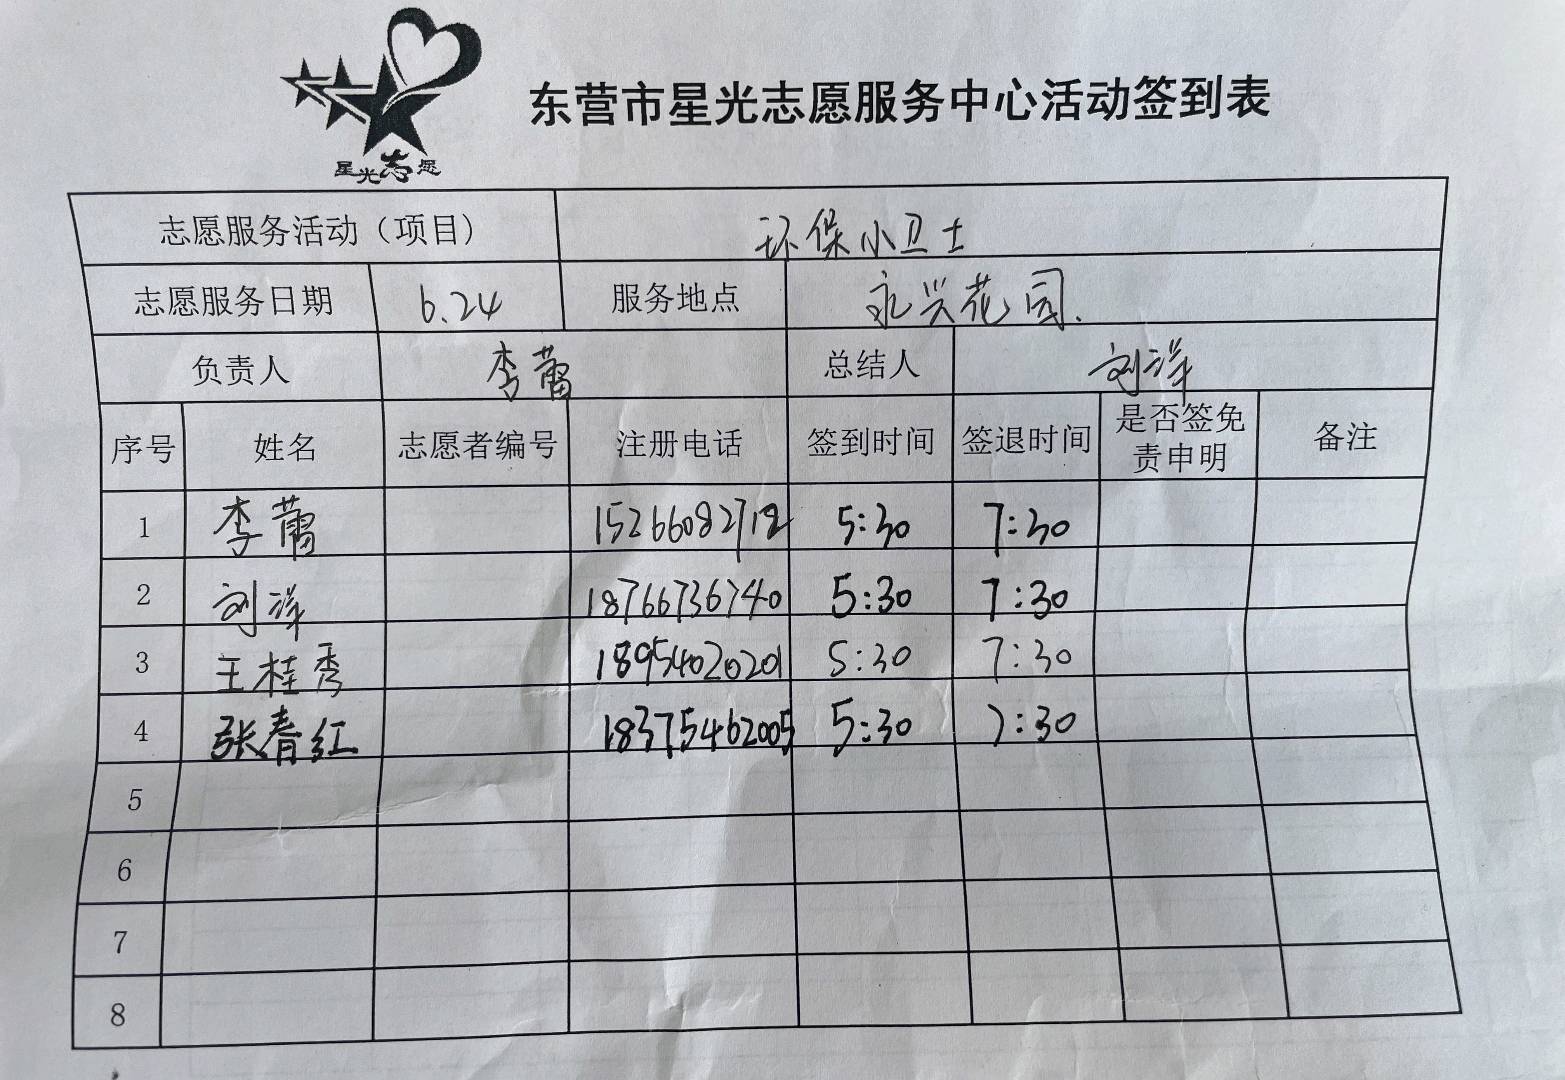 星光志愿
东营市星光志愿服务中心活动签到表
志愿服务活动（项目） 环保小卫士
志愿服务日期 6.24 服务地点 永兴花园.
负责人 李蕾 总结人 刘洋
序号 姓名 志愿者编号 注册电话 签到时间 签退时间 是否签免责申明 备注
1 李蕾 15266082712 5:30 7:30
2 刘洋 18766736740 5:30 7:30
3 王桂秀 18954020201 5:30 7:30
4 张春红 18375462005 5:30 7:30
5
6
7
8